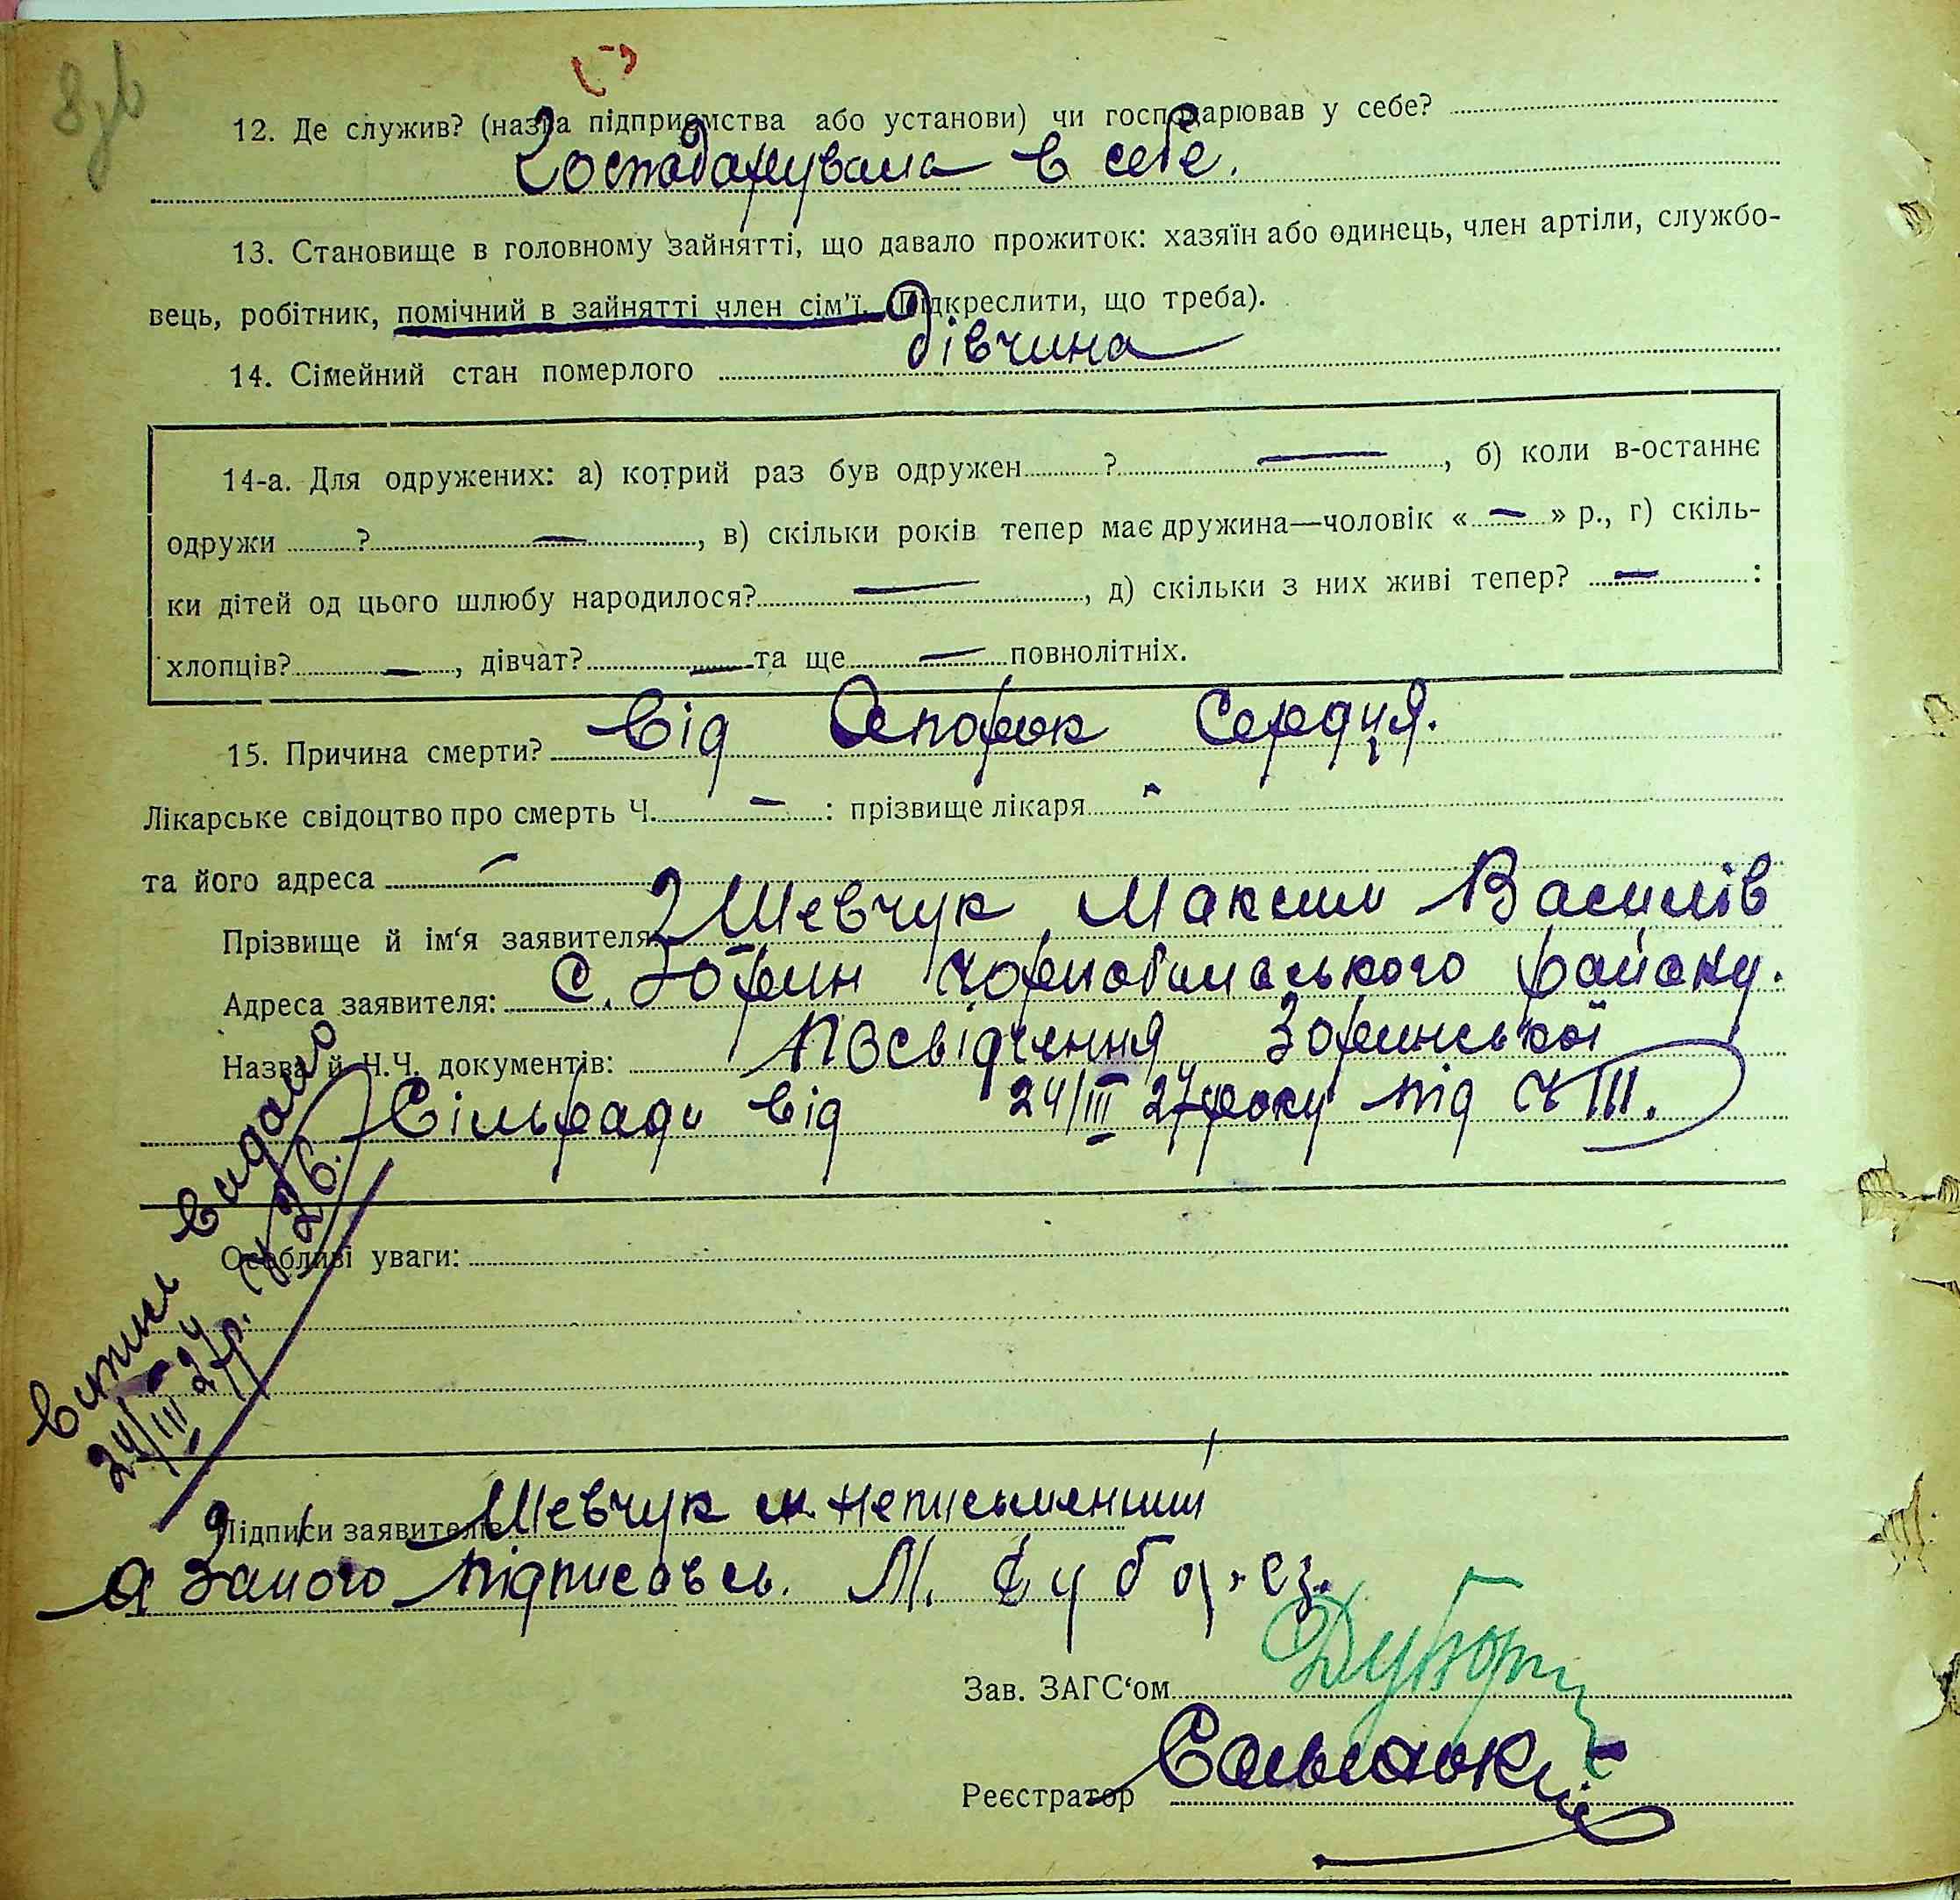 8зв
12. Де служив? (назва підприємства або установи) чи господарював у себе?
Господарувала в себе.
13. Становище в головному зайнятті, що давало прожиток: хазяїн або одинець, член артіли, службо-
вець, робітник, помічний в зайнятті член сім'ї. (Підкреслити, що треба).
14. Сімейний стан померлого дівчина
14-а. Для одружених: а) котрий раз був одружен ? —, б) коли в-останнє
одружи ? —, в) скільки років тепер має дружина—чоловік « — » р., г) скіль-
ки дітей од цього шлюбу народилося? —, д) скільки з них живі тепер? — :
хлопців? —, дівчат? — та ще — повнолітніх.
15. Причина смерти? Від Опорок Сердця.
Лікарське свідоцтво про смерть Ч. — : прізвище лікаря —
та його адреса —
Прізвище й ім'я заявителя Шевчук Максим Василів
Адреса заявителя: С. Зорин Чорнобильського району.
Назва й Н.Ч. документів: Посвідчення Зоринської
Сільради від 24/III 27 року під Ч III.
Випис видано
24/III 27р. Ч 26.
Особливі уваги:
Підписи заявителів Шевчук М. неписьменний
а за нього підписавсь. М.
Зав. ЗАГС'ом
Реєстратор